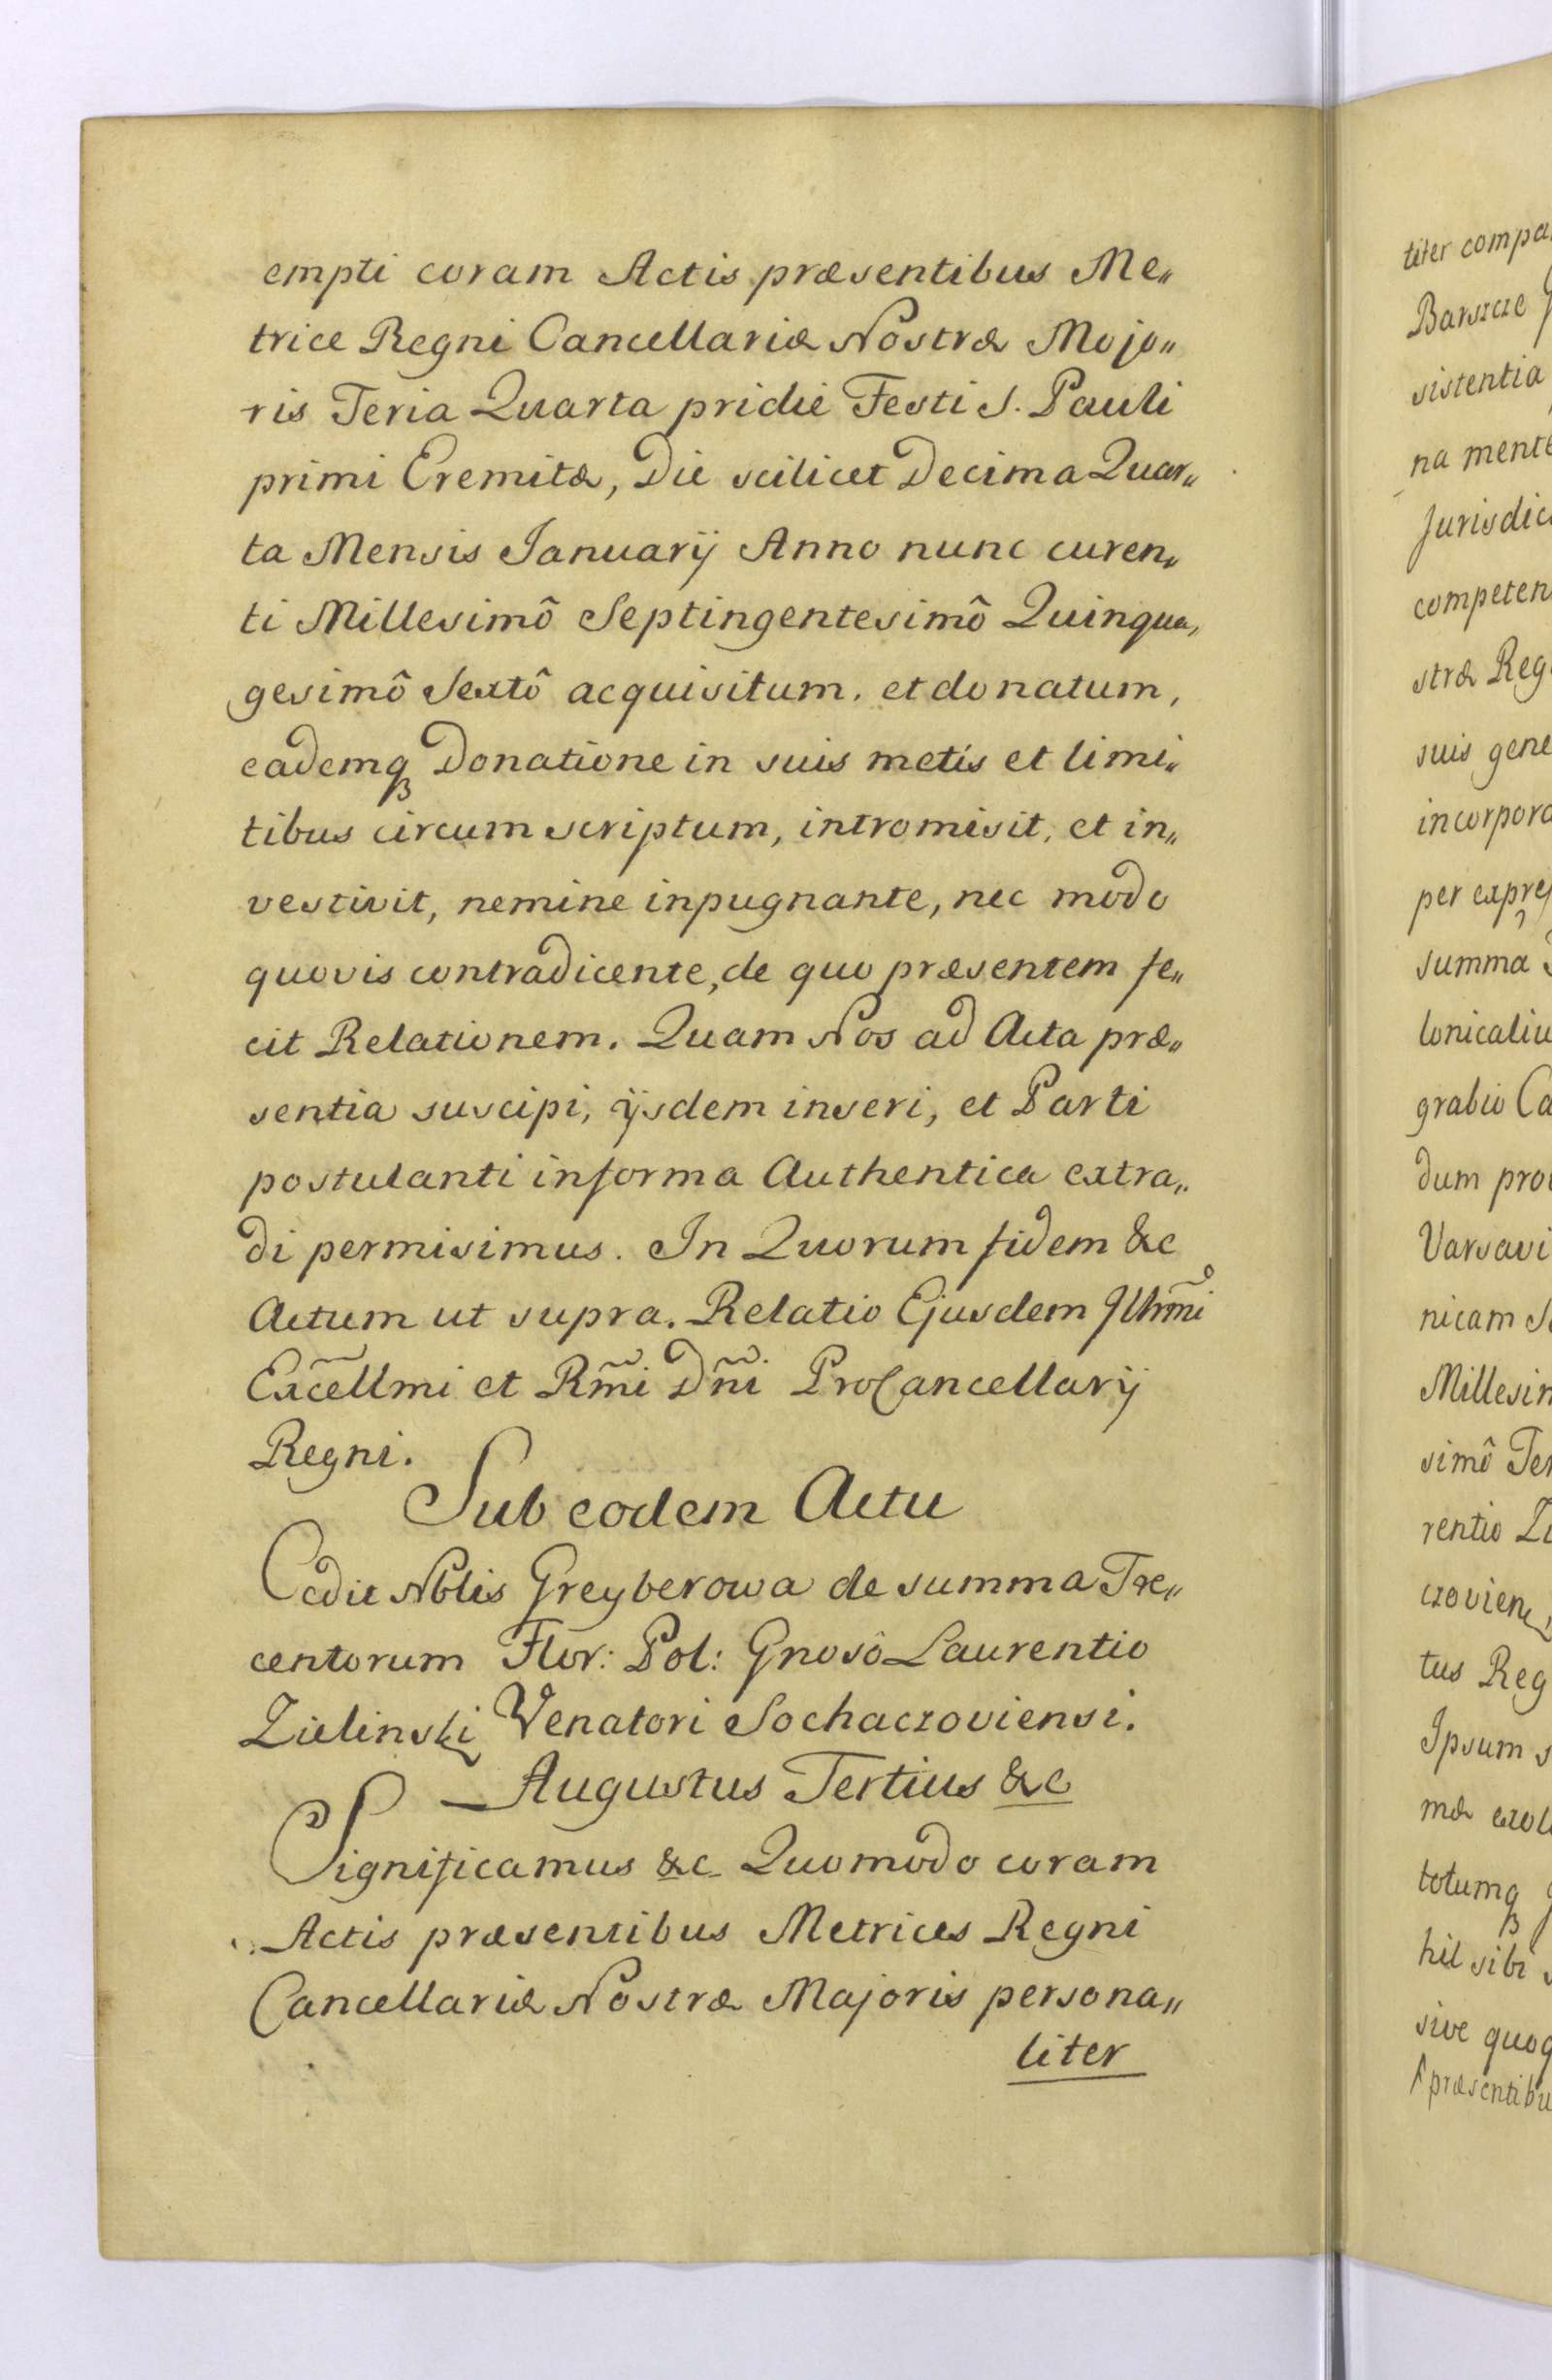 empti coram Actis præsentibus Me„
trice Regni Cancellariæ Nostræ Mojo„
ris Feria Quarta pridie Festi S. Pauli
primi Eremitæ, Die scilicet Decima Quar„
ta Mensis Januarij Anno nunc curen„
ti Millesimô Septingentesimô Quinqua„
gesimô Sextô acquisitum, et donatum,
eademq Donatione in suis metis et limi„
tibus circum scriptum, intromisit, et in„
vestivit, nemine inpugnante, nec modo
quovis contradicente, de quo præsentem fe„
cit Relationem. Quam Nos ad Acta præ„
sentia suscipi, ijsdem inseri, et Parti
postulanti in forma Authentica extra„
di permisimus. In Quorum fidem &c
Actum ut supra. Relatio Ejusdem Illmi
Excellmi et Rmi Dni ProCancellarij
Regni.
Sub eodem Actu
Cedit Nblis Greyberowa de summa Tre„
centorum Flor: Pol: Gnosô Laurentio
Zielinski Venatori Sochaczoviensi.
Augustus Tertius &c
Significamus &c Quomodo coram
Actis præsentibus Metrices Regni
Cancellariæ Nostræ Majoris persona„
liter
titer compa
Barszcze
sistentia
na mente
Jurisdic
competen
stræ Reg
suis gene
incorpora
per expres
summa
lonicaliu
grabio Ca
dum pro
Varsavi
nicam
Millesim
simô Ter
rentio Zi
czovien
tus Reg
Ipsum s
mæ
totumq
hil sibi
sive quoq
præsentibu